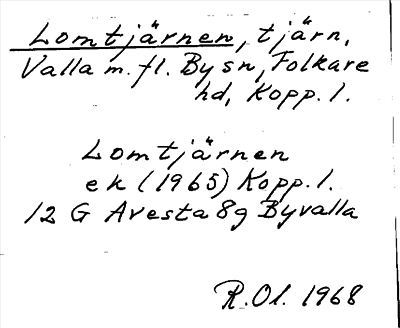 Lomtjärnen, tjärn,
Valla m. fl. By sn, Folkare
hd, Kopp. l.
Lomtjärnen
ek (1965) Kopp. l.
12 G Avesta 8g Byvalla
R. Ol. 1968